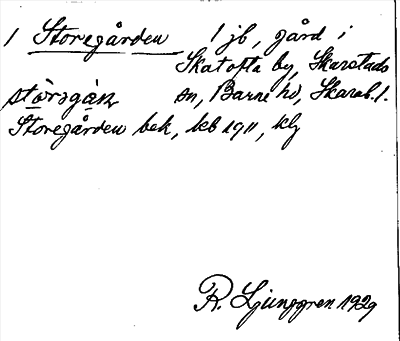 1 Storegården 1 jb, gård i
Skatofta by, Skarstads
stòrəgán sn, Barne hd, Skarab. l.
Storegården bek, kb 1911, klj
R. Ljunggren 1929